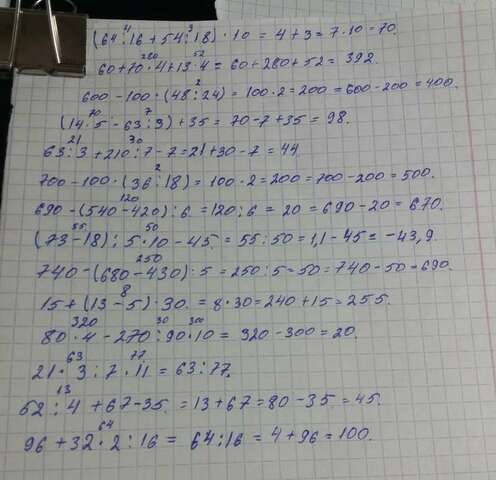 (64 : 16 + 54 : 18) · 10 = 4 + 3 = 7 · 10 = 70.
60 + 70 · 4 + 13 · 4 = 60 + 280 + 52 = 392.
600 - 100 · (48 : 24) = 100 · 2 = 200 = 600 - 200 = 400.
(14 · 5 - 63 : 3) + 35 = 70 - 7 + 35 = 98.
63 : 3 + 210 : 7 - 7 = 21 + 30 - 7 = 44
700 - 100 · (36 : 18) = 100 · 2 = 200 = 700 - 200 = 500.
690 - (540 - 420) : 6 = 120 : 6 = 20 = 690 - 20 = 670.
(73 - 18) : 5 · 10 - 45 = 55 : 50 = 1,1 - 45 = -43,9.
740 - (680 - 430) · 5 = 250 : 5 = 50 = 740 - 50 = 690.
15 + (13 - 5) · 30 = 8 · 30 = 240 + 15 = 255.
80 · 4 - 270 : 90 · 10 = 320 - 300 = 20.
21 · 3 : 7 · 11 = 63 : 77.
52 : 4 + 67 - 35 = 13 + 67 = 80 - 35 = 45.
96 + 32 · 2 : 16 = 64 : 16 = 4 + 96 = 100.